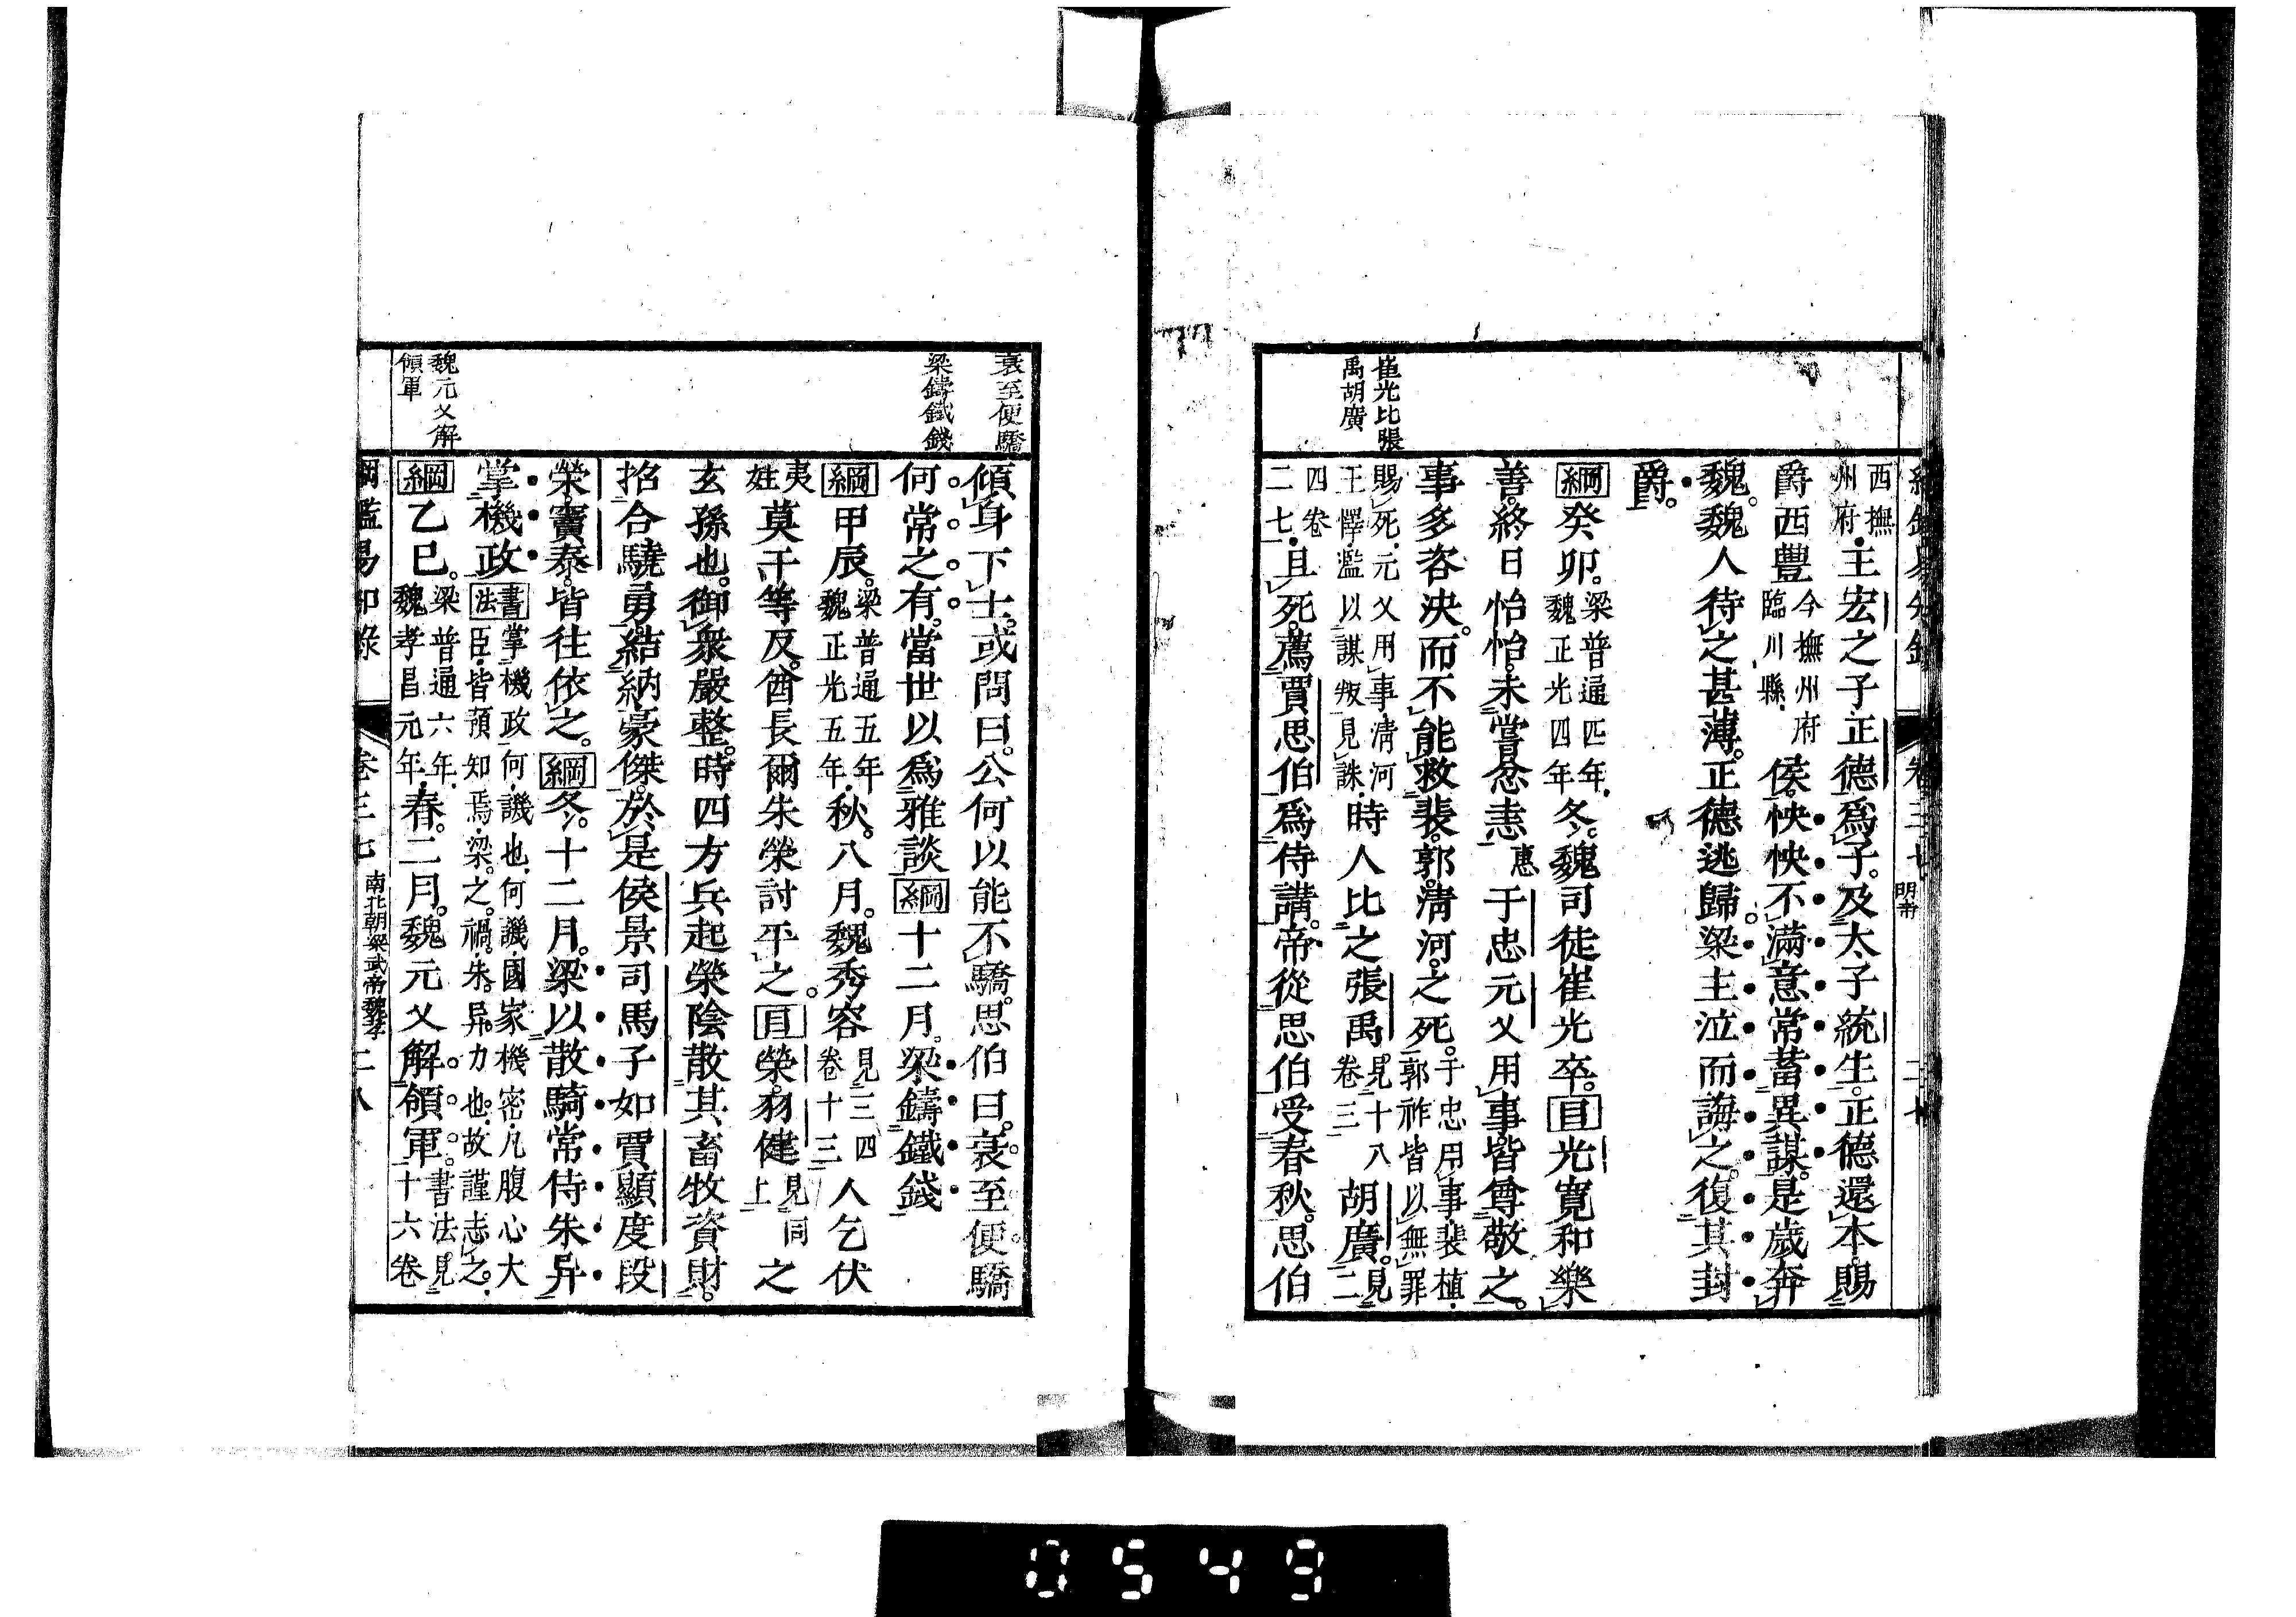 西撫州府主宏之子正德爲子及太子統生正德還本賜
爵西豐今撫州府臨川縣侯怏怏不滿意常蓄異謀是歲奔
魏魏人待之甚薄正德逃歸梁主泣而誨之復其封
爵
綱癸卯梁普通四年魏正光四年冬魏司徒崔光卒目光寬和樂
善終日怡怡未嘗忿恚恚于忠元乂用事皆尊敬之
事多咨決而不能救裴郭淸河之死于忠用事裴植郭祚皆以無罪
賜死元乂用事淸河王懌濫以謀叛見誅時人比之張禹見十八卷三胡廣見二
四卷二七且死薦賈思伯爲侍講帝從思伯受春秋思伯
崔光比張
禹胡廣
傾身下士或問曰公何以能不驕思伯曰衰至便驕
何常之有當世以爲雅談綱十二月梁鑄鐵錢
綱甲辰梁普通五年魏正光五年秋八月魏秀容見三四卷十三人乞伏
夷姓莫于等反酋長爾朱榮討平之目榮羽健見同上之
玄孫也御衆嚴整時四方兵起榮陰散其畜牧資財
招合驍勇結納豪傑於是侯景司馬子如賈顯度段
榮竇泰皆往依之綱冬十二月梁以散騎常侍朱异
掌機政書法書掌機政何譏也何譏國家機密凡腹心大臣皆預知焉梁之禍朱异力也故謹志之
綱乙巳梁普通六年魏孝昌元年春二月魏元乂解領軍書法見十六卷
衰至便驕
梁鑄鐵錢
魏元乂解
領軍
綱鑑易知錄
卷三七
南北朝梁武帝魏孝
二八
0549